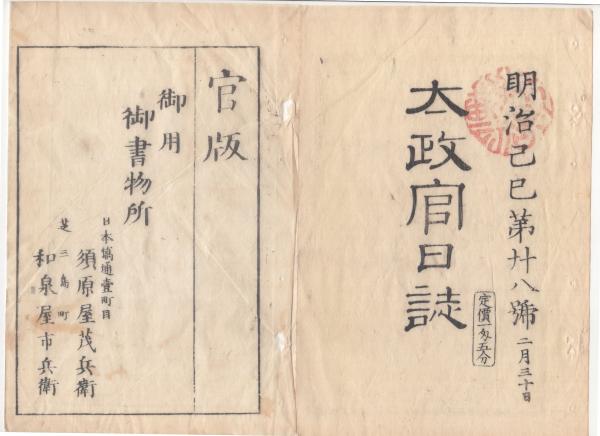 明治己巳第廿八號 二月三十日
太政官日誌
定價一匁五分
官版
御用
御書物所
日本橋通壹町目
須原屋茂兵衛
芝三島町
和泉屋市兵衛